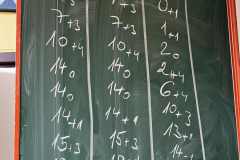 7+3
10+4
14 0
14 0
14+1
15+3
7+3
10+4
14 0
14 0
14
15+3
0+1
1+1
2 0
2+4
6+4
10+3
13+1